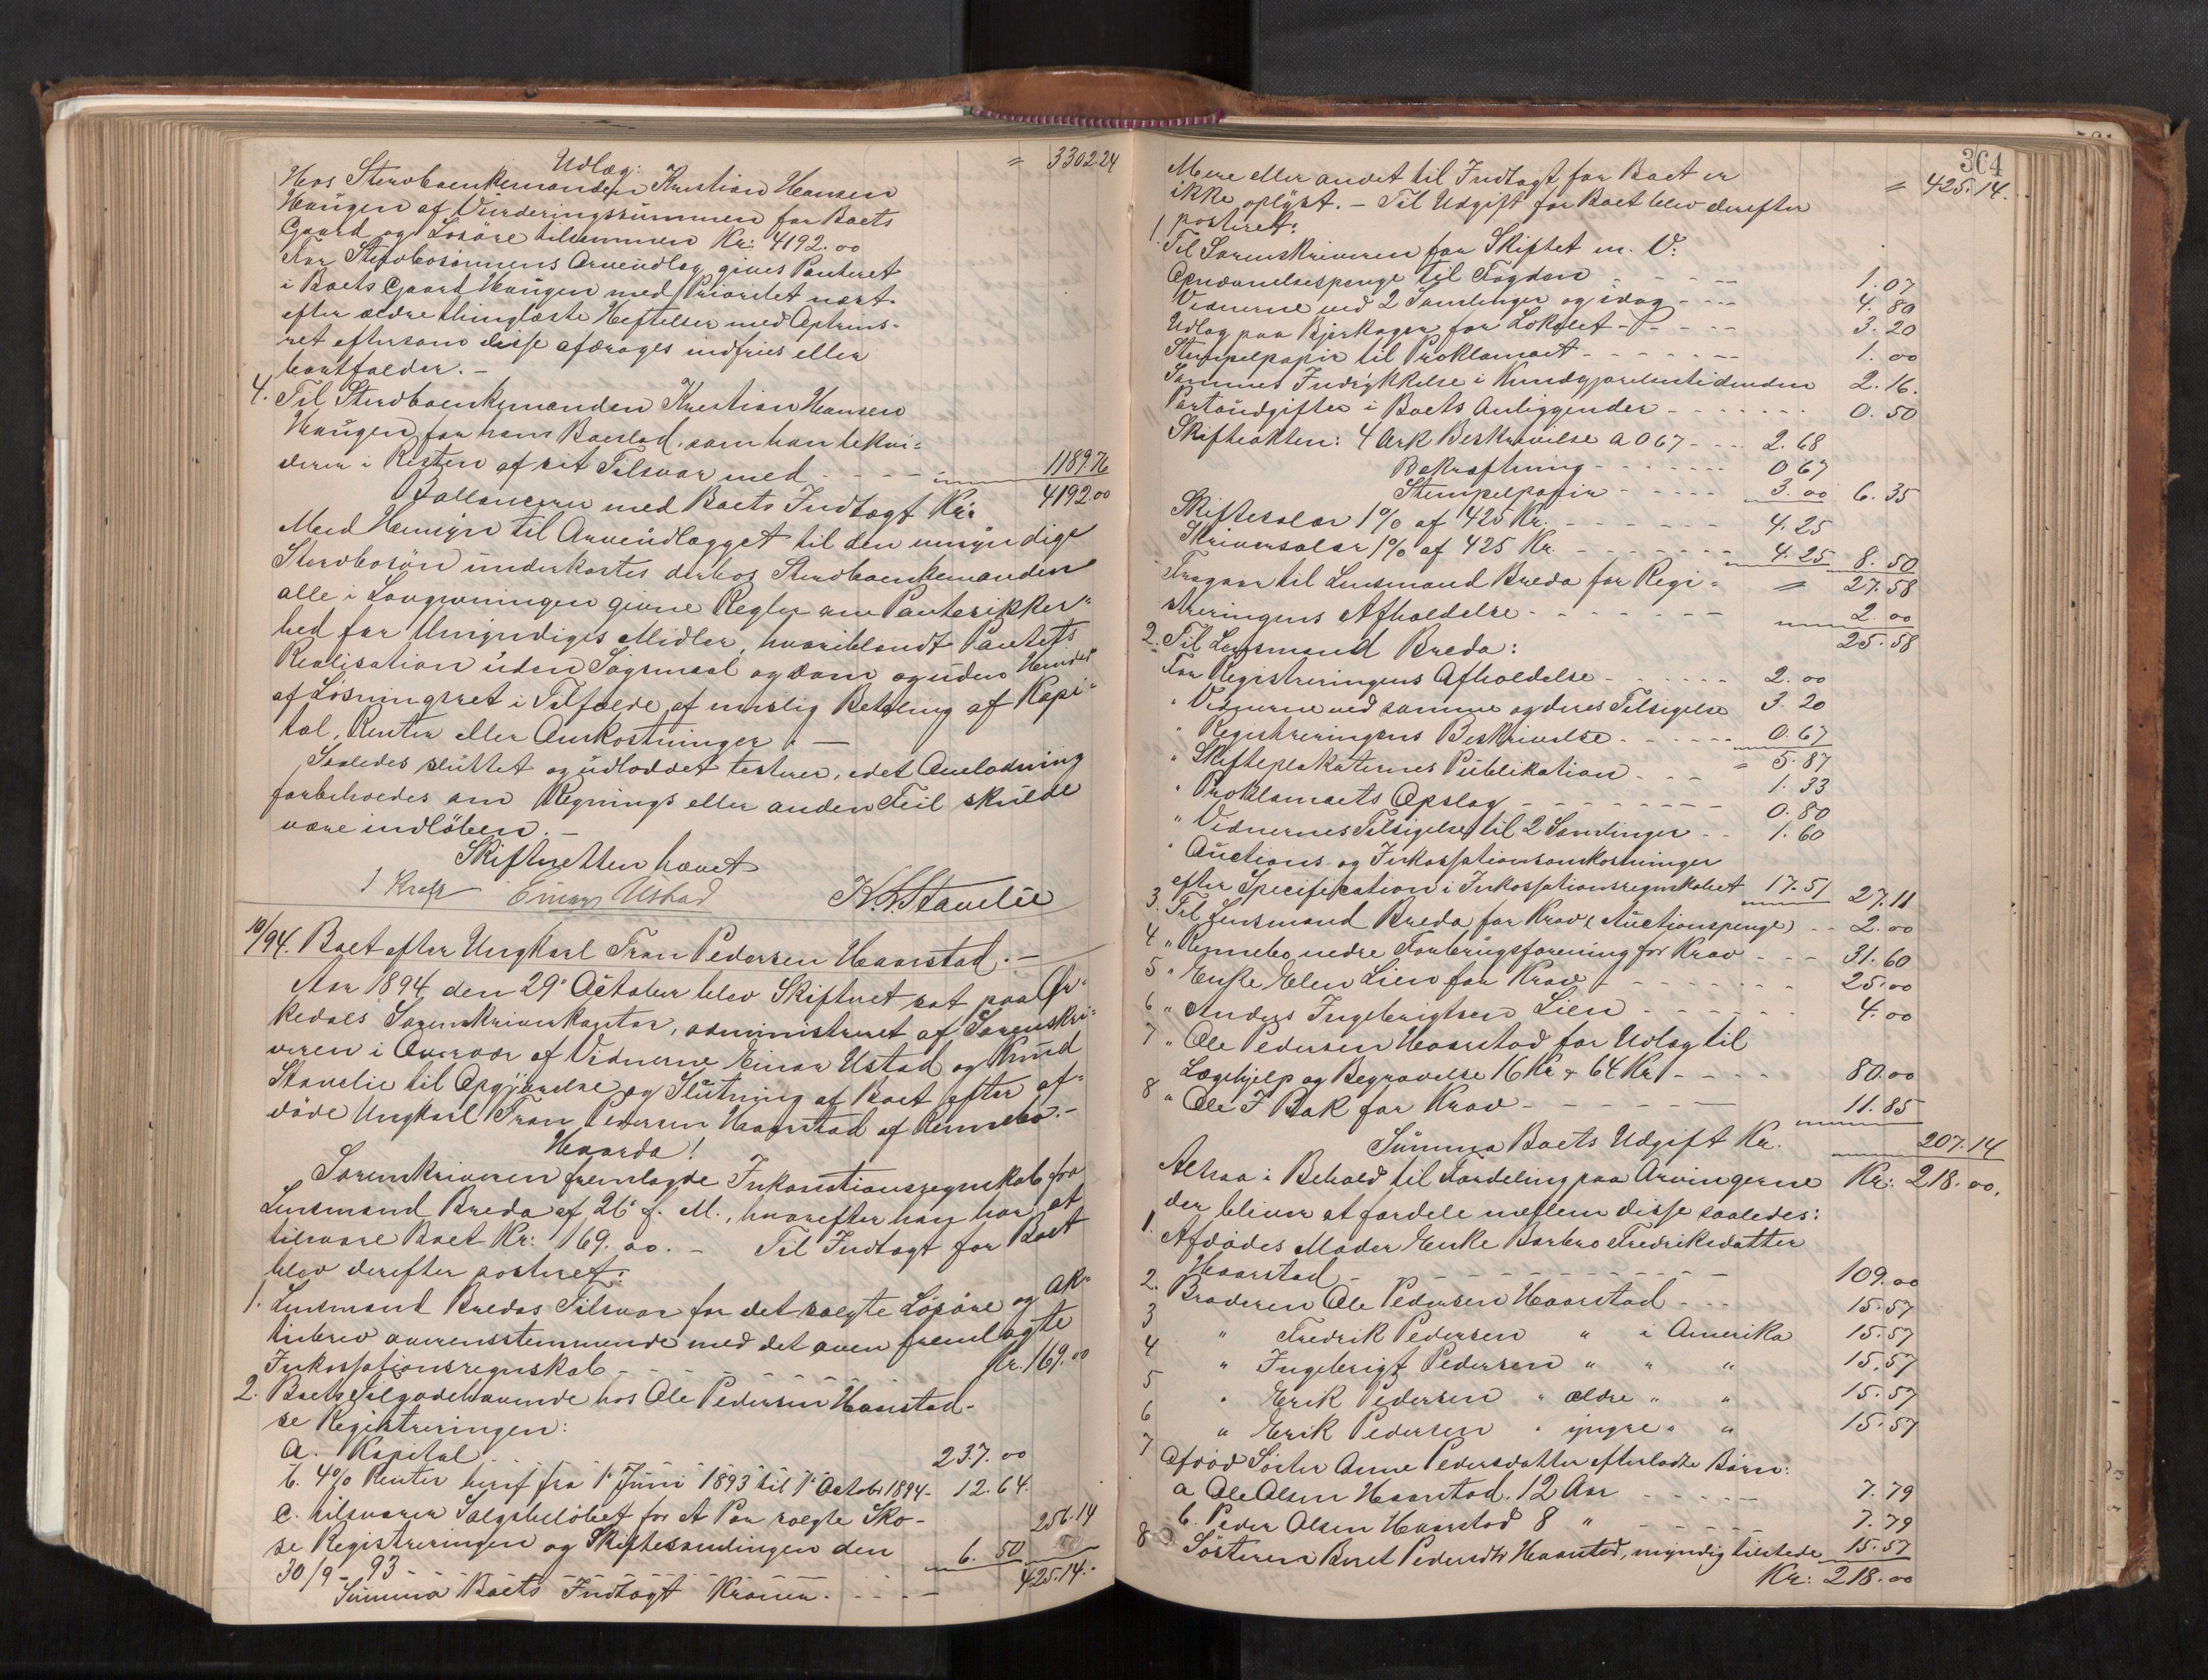 Udlæg: = 3302.24
Hos Stervboenkemanden Kristian Hansen
Haugen af Vurderingssummen for Boets
Gaard og Løsøre tilsammen Kr: 4192.00
For Stervbosønnens Arveudlæg gives Panteret
i Boets Gaard Haugen med Prioritet næst
efter ældre thinglæste Heftelser med Optrins-
ret eftersom disse afdrages indfries eller
bortfalder. –
4. Til Stervboenkemanden Kristian Hansen
Haugen for hans Boeslod, som han likvi-
derer i Resten af sit Tilsvar med - - - - 1189.76
Ballancerer med Boets Indtægt Kr. 4192.00
Med Hensyn til Arveudlægget til den umyndige
Stervbosøn underkastes derhos Stervboenkemanden
alle i Lovgivningen givne Regler om Pantesikker-
hed for Umyndiges Midler, hvoriblandt Pantets
Realisation uden Søgsmaal og Dom og uden Hinder
af Løsningsret i Tilfælde af mislig Betaling af Kapi-
tal, Renter eller Omkostninger. –
Saaledes sluttet og udloddet testerer, idet Omlodning
forbeholdes om Regnings eller anden Feil skulde
være indløben. –
Skifteretten hævet
Einar Ustad K. Stavelie
10/94. Boet efter Ungkarl Tron Pedersen Haarstad. –
Aar 1894 den 29' October blev Skifteret sat paa Or-
kedals Sorenskriverkontor, administreret af Sorenskri-
veren i Overvær af Vidnerne Einar Ustad og Knud
Stavelie til Opgjørelse og Slutning af Boet efter af-
døde Ungkarl Tron Pedersen Haarstad af Rennebo. –
Hvorda!
Sorenskriveren fremlagde Inkassationsregnskab fra
Lensmand Breda af 26' d. M., hvorefter han har at
tilsvare Boet Kr: 169.00. – Til Indtægt for Boet
blev derefter posteret:
1. Lensmand Bredas Tilsvar for det solgte Løsøre og Ak-
tiebrev overensstemmende med det oven fremlagte
Inkassationsregnskab - - - - - Kr. 169.00
2. Boets Tilgodehavende hos Ole Pedersen Haarstad -
se Registreringen:
a. Kapital 237.00
b. 4% Renter heraf fra 1' Juni 1893 til 1' Octobr 1894 - 12.64.
c. tilsvarer Salgsbeløbet for et Par solgte Sko -
se Registreringen og Skiftesamlingen den 6.50 256.14
30/9 - 93 - - - - - -
Summa Boets Indtægt Kroner. - - - - 425.14.
364
Mere eller andet til Indtægt for Boet er = 425.14.
ikke oplyst. – Til Udgift for Boet blev derefter
posteret:
1. Til Sorenskriveren for Skiftet m. V:
Opnævnelsespenge til Fogden - - - - 1.07
Vidnerne ved 2 Samlinger og idag - - - 4.80
Udlæg paa Bjerkager for Lokalet - - - - 3.20
Stempelpapir til Proklamaet - - - - - - 1.00
Sammes Indrykkelse i Kundgjørelsestidenden 2.16.
Portoudgifter i Boets Anliggender - - - - - - 0.50
Skifteakten: 4 Ark Beskrivelse a 067 - - - 2.68
Bekræftning - - - - - - 067
Stempelpapir - - - - - 3.00 6.35
Skiftesalær 1% af 425 Kr. - - - - - - 4.25
Skriversalær 1% af 425 Kr. - - - - - - 4.25 8.50
Fragaar til Lensmand Breda for Regi- = 27.58
streringens Afholdelse - - - - - - - 2.00
25.58
2. Til Lensmand Breda:
For Registreringens Afholdelse - - - - - - 2.00
" Vidnerne ved samme og deres Tilsigelse 3.20
" Registreringens Beskrivelse - - - - - 0.67
= 5.87
" Skifteplakaternes Publikation - - - 1.33
" Proklamaets Opslag - - - - - - - - 0.80
" Vidnernes Tilsigelse til 2 Samlinger - - 1.60
" Auctions og Inkassationsomkostninger
efter Specification i Inkassationsregnskabet 17.51 27.11
3. Til Lensmand Breda for Krav (Auctionspenge) - - 2.00
4 " Rennebo nedre Forbrugsforening for Krav - - - 31.60
5 " Enke Elen Lien for Krav - - - - - - - 25.00
6 " Anders Ingebrigtsen Lien - - - - - - 4.00
7 " Ole Pedersen Haarstad for Udlæg til
Lægehjelp og Begravelse 16 Kr + 64 Kr - - - - 80.00
8 " Ole J Bak for Krav - - - - - - - 11.85
Summa Boets Udgift Kr. 207.14
Altsaa i Behold til Fordeling paa Arvingerne Kr: 218.00.
der bliver at fordele mellem disse saaledes:
1. Afdødes Moder Enke Barbro Fredriksdatter
Haarstad - - - - - - - - - 109.00
2. Broderen Ole Pedersen Haarstad - - - 15.57
3 " Fredrik Pedersen " i Amerika 15.57
4 " Ingebrigt Pedersen " " " 15.57
5 " Erik Pedersen " ældre " " 15.57
6 " Erik Pedersen " yngre " " 15.57
7 Afdød Søster Anne Pedersdatter efterladte Børn:
a Ole Olsen Haarstad. 12 Aar - - - - - 7.79
b. Peder Olsen Haarstad 8 " - - - - - 7.79
8 Søsteren Beret Pedersdtr Haarstad, myndig tilstede 15.57
Kr: 218.00